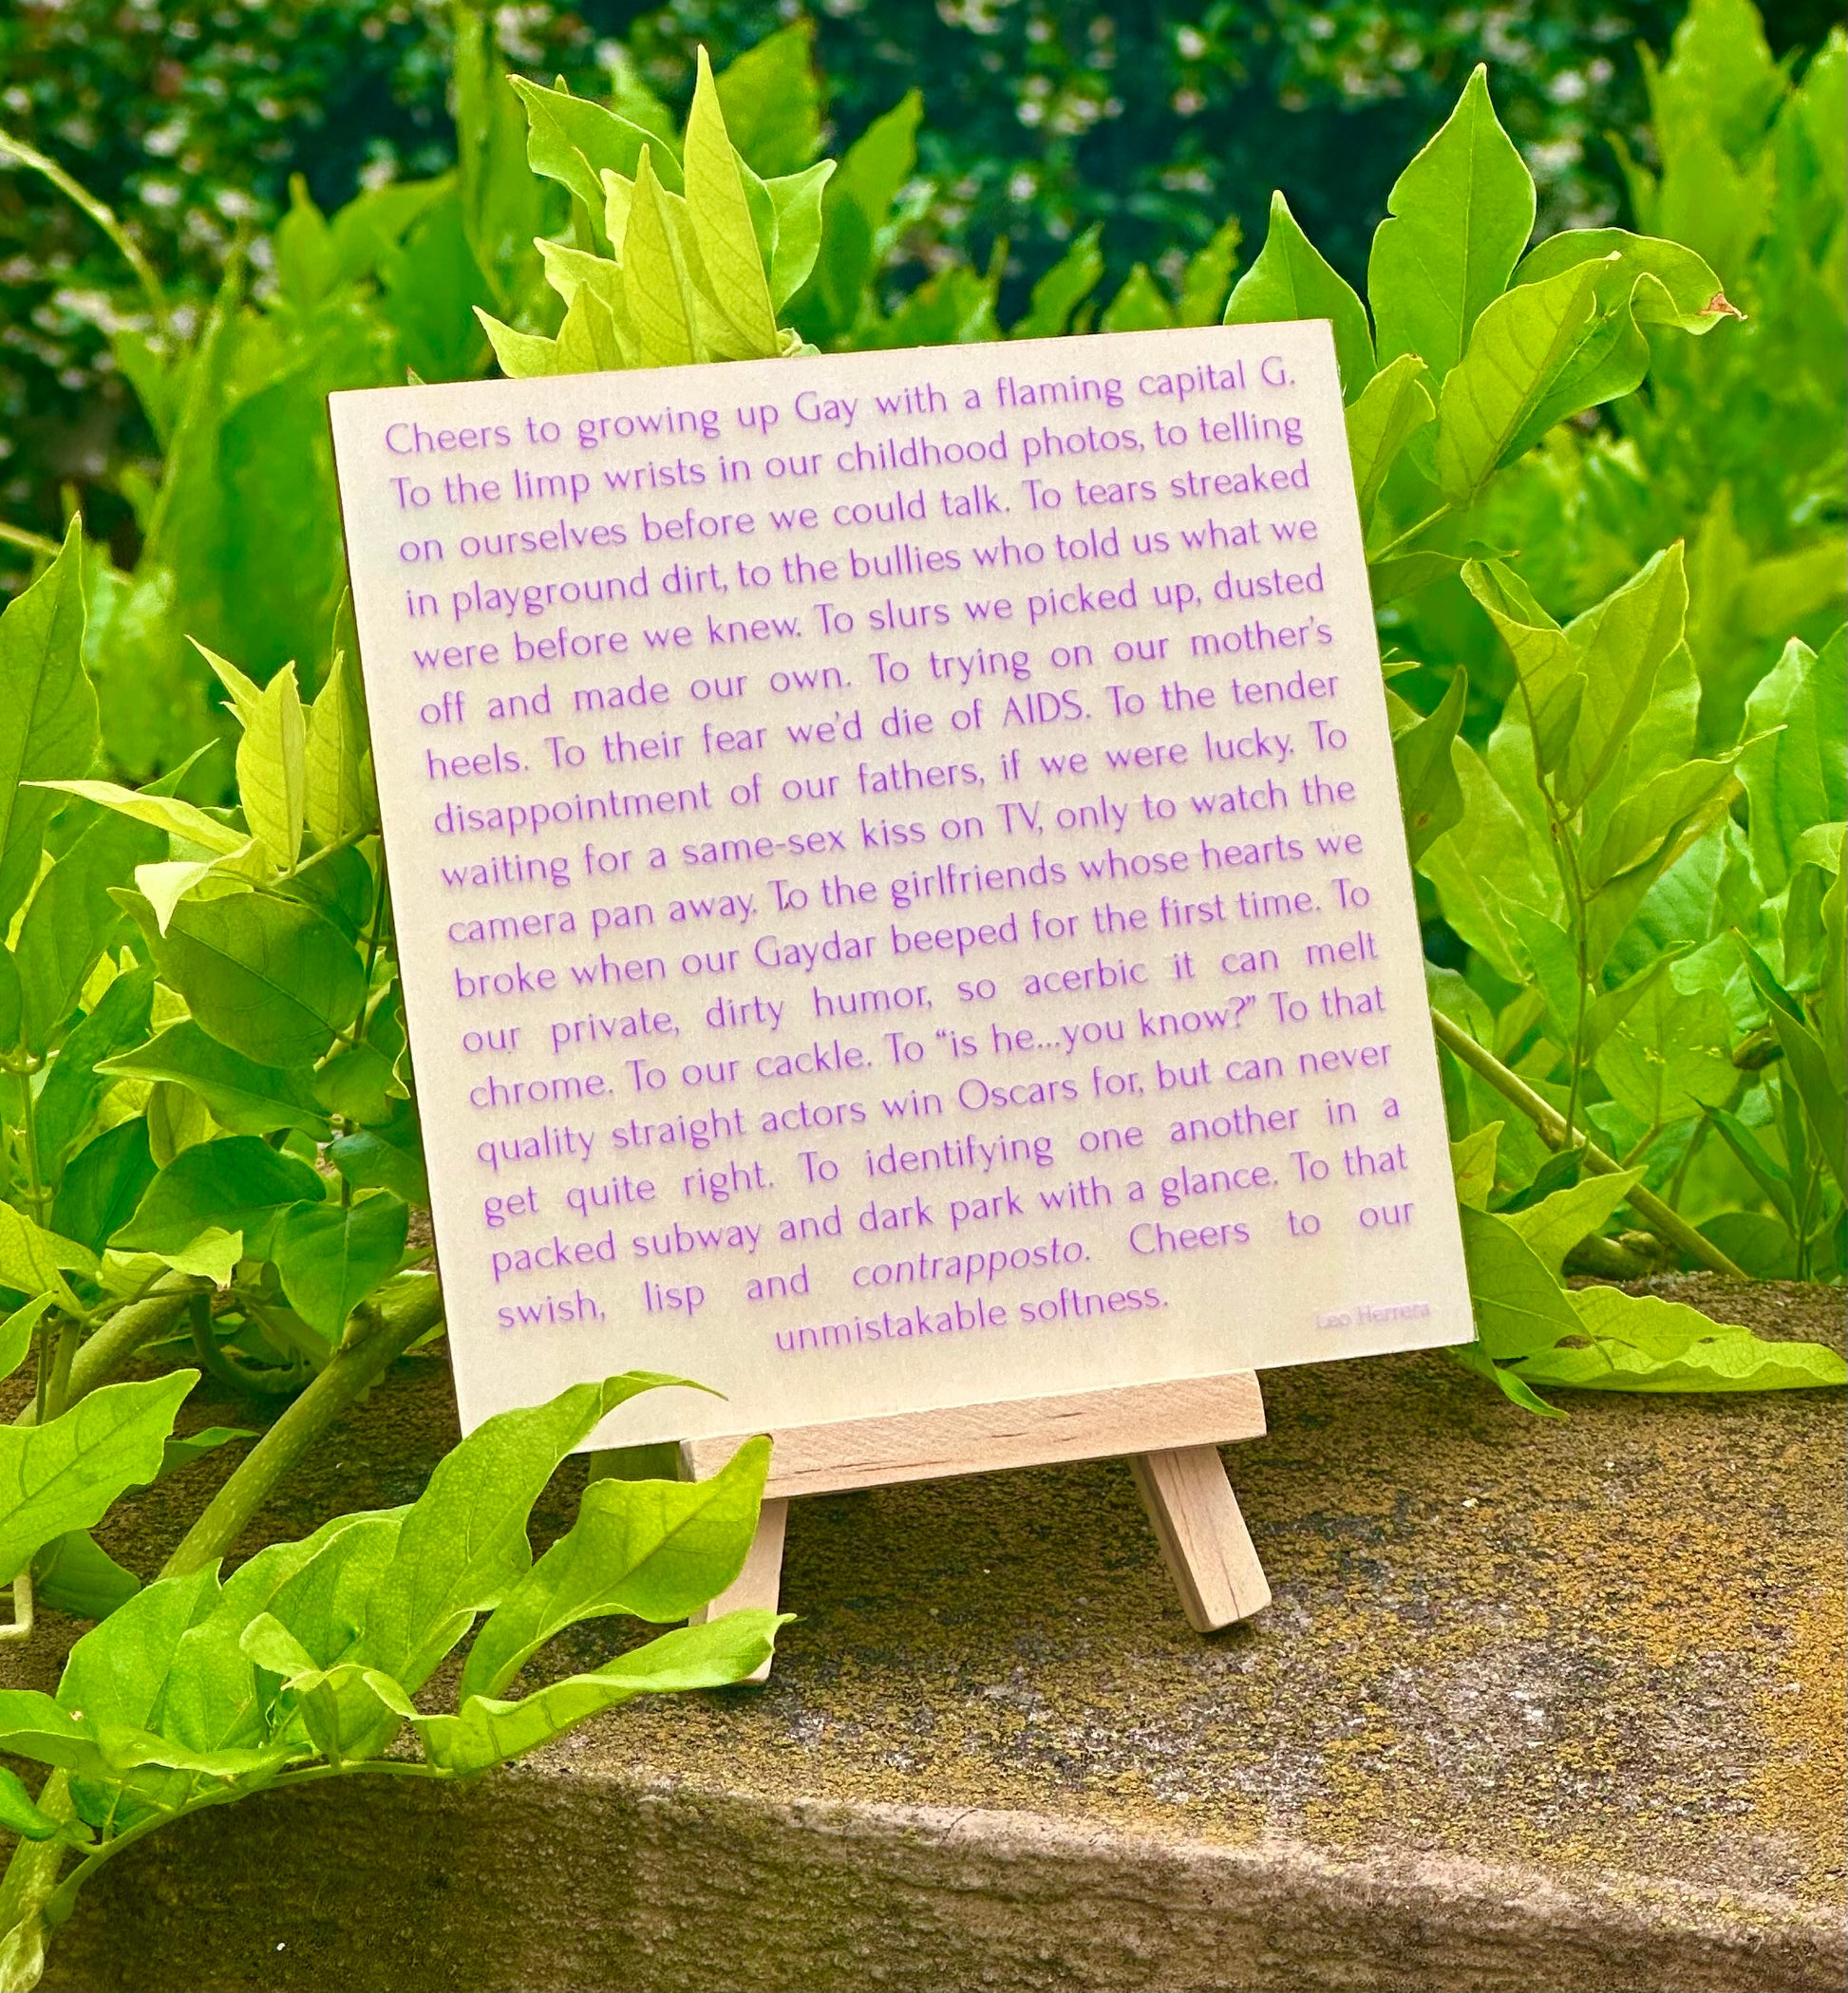 Cheers to growing up Gay with a flaming capital G.
To the limp wrists in our childhood photos, to telling
on ourselves before we could talk. To tears streaked
in playground dirt, to the bullies who told us what we
were before we knew. To slurs we picked up, dusted
off and made our own. To trying on our mother’s
heels. To their fear we’d die of AIDS. To the tender
disappointment of our fathers, if we were lucky. To
waiting for a same-sex kiss on TV, only to watch the
camera pan away. To the girlfriends whose hearts we
broke when our Gaydar beeped for the first time. To
our private, dirty humor, so acerbic it can melt
chrome. To our cackle. To “is he...you know?” To that
quality straight actors win Oscars for, but can never
get quite right. To identifying one another in a
packed subway and dark park with a glance. To that
swish, lisp and contrapposto. Cheers to our
unmistakable softness.
Leo Herrera